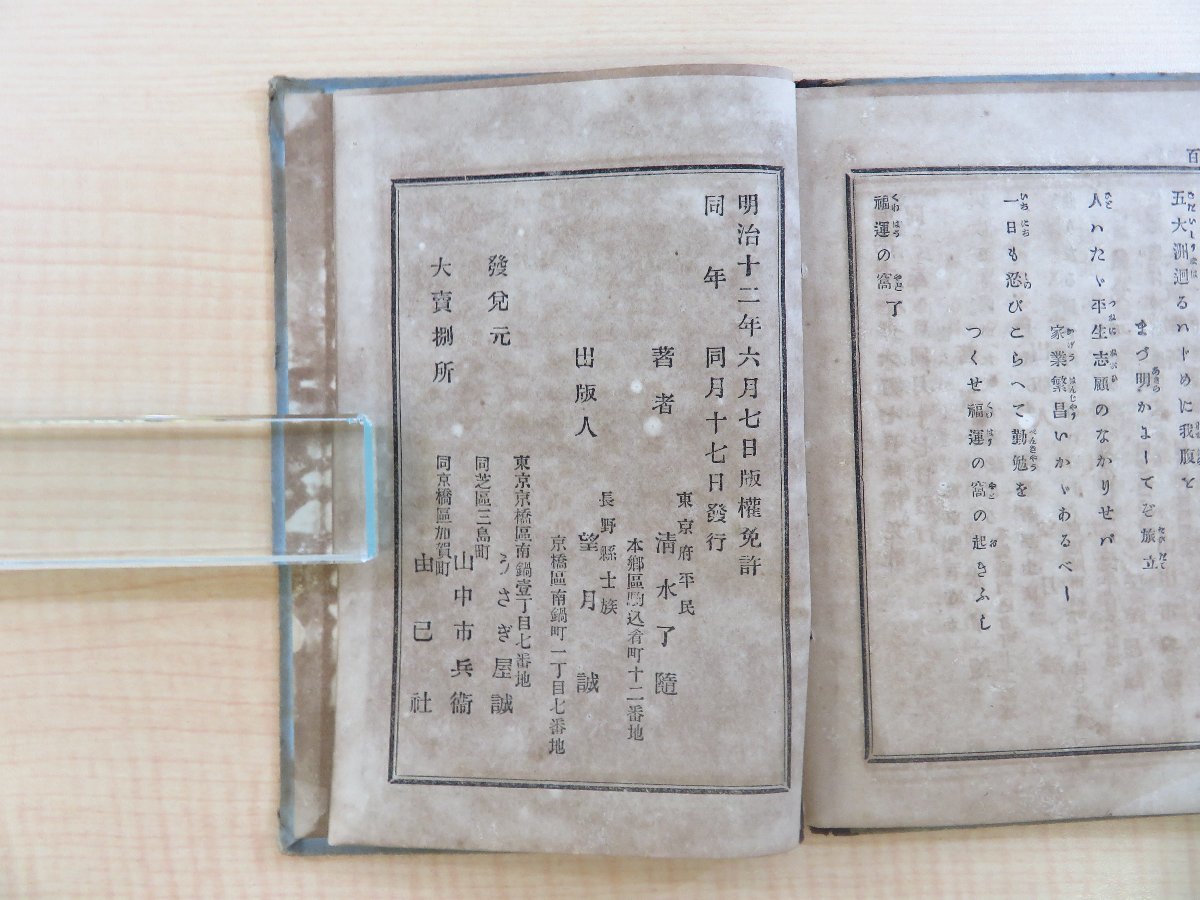 百
五大洲迴るハドめに我腹と
まづ明かよしてを旅立
人ハたゞ平生志願のなかりせバ
家業繁昌いかゞあるべし
一日も忍びこらへて勤勉を
つくせ福運の窩の起きふし
福運の窩了
明治十二年六月七日版權免許
同年 同月十七日發行
東京府平民
著者 清水了隨
本郷區駒込肴町十二番地
長野縣士族
出版人 望月誠
京橋區南鍋町一丁目七番地
東京京橋區南鍋壹丁目七番地
發兌元 うさぎ屋誠
同芝區三島町
山中市兵衞
大賣捌所
同京橋區加賀町
由己社